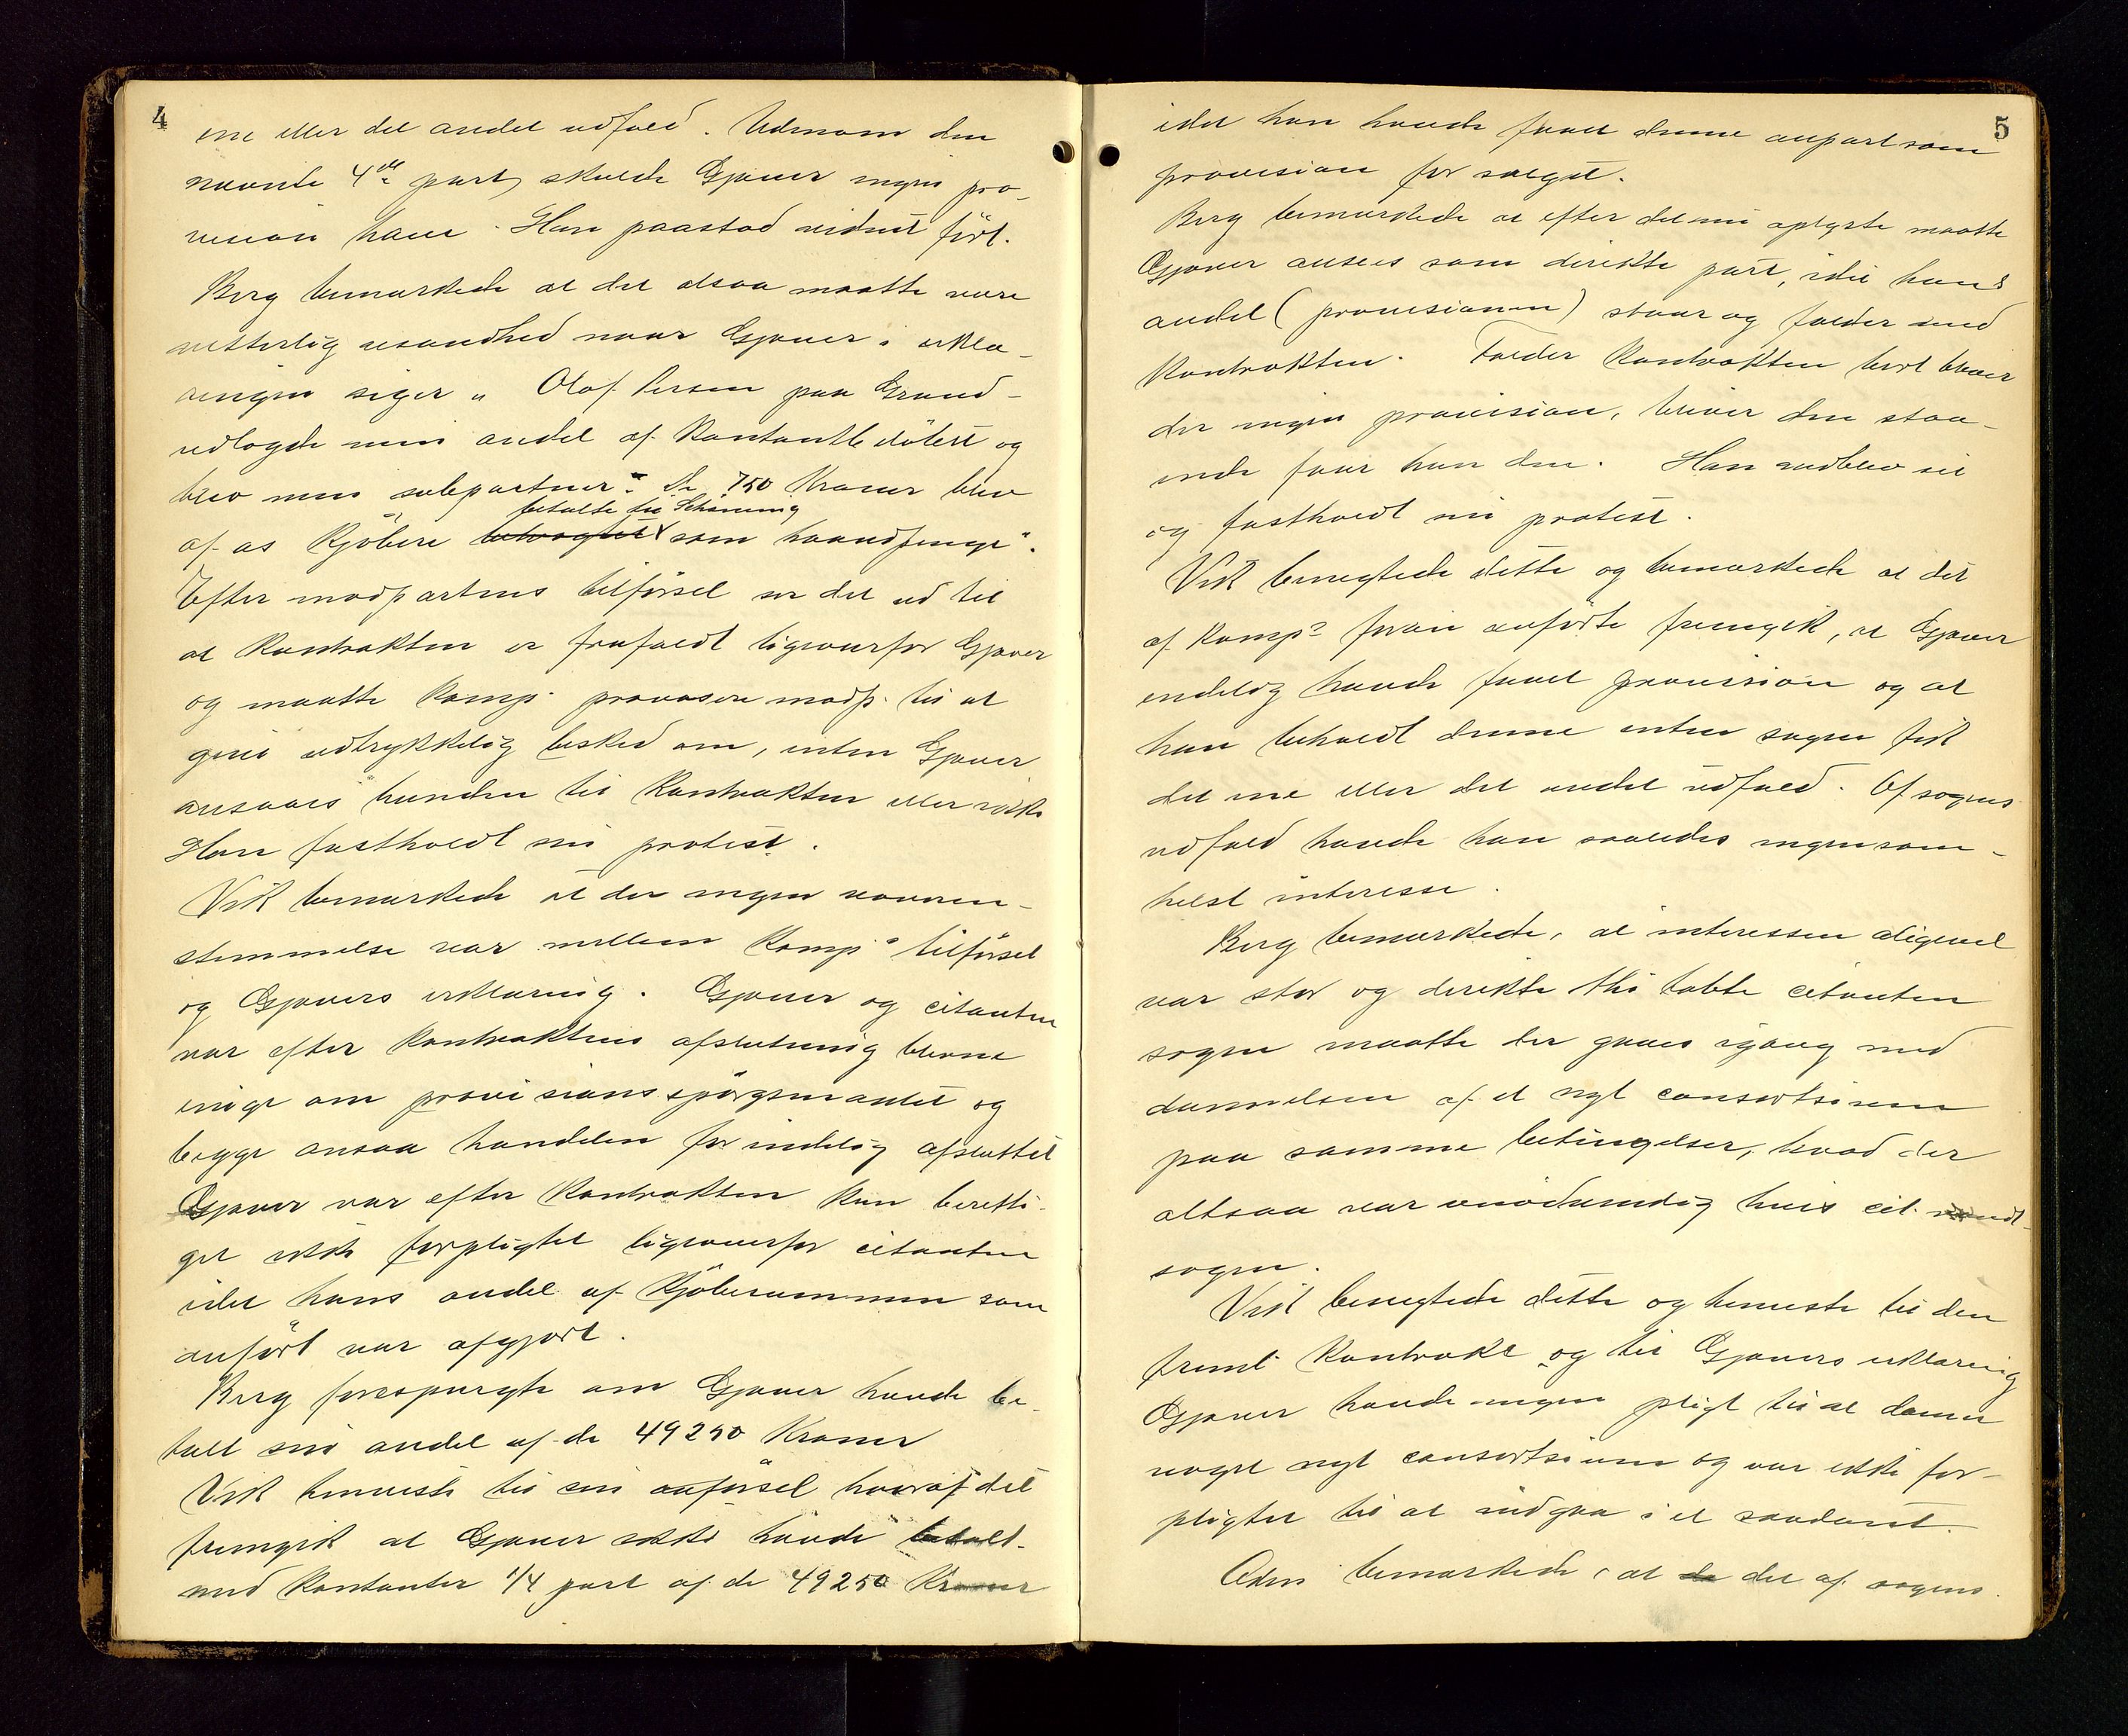 4
ene eller det andet udfald. Udenom den
nævnte 4de part, skulde Gjæver ingen pro-
vision have. Han paastod vidnet ført.
Berg bemærkede at det altsaa maatte være
vitterlig usandhed naar Gjæver i erklæ-
ringen siger „ Olaf Larsen paa Grund-
udlagde min andel af Kontantbeløbet og
blev min subpartner". De 750 Kroner blev
betalte til Schøning
af os Kjøbere som haandpenge".
Efter modpartens tilførsel ser det ud til
at Kontrakten er frafaldt ligeoverfor Gjæver
og maatte Komp. provosere modp. til at
give udtrykkelig besked om, enten Gjæver
ansaaes bunden til Kontrakten eller ikke
Han fastholdt sin protest.
Vik bemærkede at der ingen overens-
stemmelse var mellem Komps tilførsel
og Gjævers erklæring. Gjæver og citanten
var efter Kontraktens afslutning blevne
enige om provisionsspørgsmaalet og
begge ansaa handelen for endelig afsluttet
Gjæver var efter Kontrakten kun beretti-
get ikke forpligtet ligeoverfor citanten
idet hans andel af Kjøbesummen som
anført var afgjort.
Berg forespurgte om Gjæver havde be-
talt sin andel af de 49250 Kroner
Vik henviste til sin anførsel hvoraf det
fremgik at Gjæver ikke havde betalt
med Kontanter 1/4 part af de 49250 Kroner
5
idet han havde faaet denne anpart som
provision for salget.
Berg bemærkede at efter det nu oplyste maatte
Gjæver ansees som direkte part, idet hans
andel (provisionen) staar og falder med
Kontrakten. Falder Kontrakten bort bliver
der ingen provision, bliver den staa-
ende faar han den. Han vedblev sit
og fastholdt sin protest.
Vik benegtede dette og bemærkede at det
af Komps foran anførte fremgik, at Gjæver
endelig havde faaet provision og at
han beholdt denne enten sagen fik
det ene eller det andet udfald. Af sagens
udfald havde han saaledes ingensom-
helst interesse.
Berg bemærkede, at interessen aligevel
var stor og direkte thi tabte citanten
sagen maatte der gaaes igang med
dannelsen af et nyt consortsium
paa samme betingelser, hvad der
altsaa var unødvendig hvis cit. vandt
sagen.
Vik benegtede dette og henviste til den
freml. Kontrakt og til Gjævers erklæring
Gjæver havde ingen pligt til at danne
noget nyt consortsium og var ikke for-
pligtet til at indgaa i et saadant.
Adm. bemærkede, at det af sagens